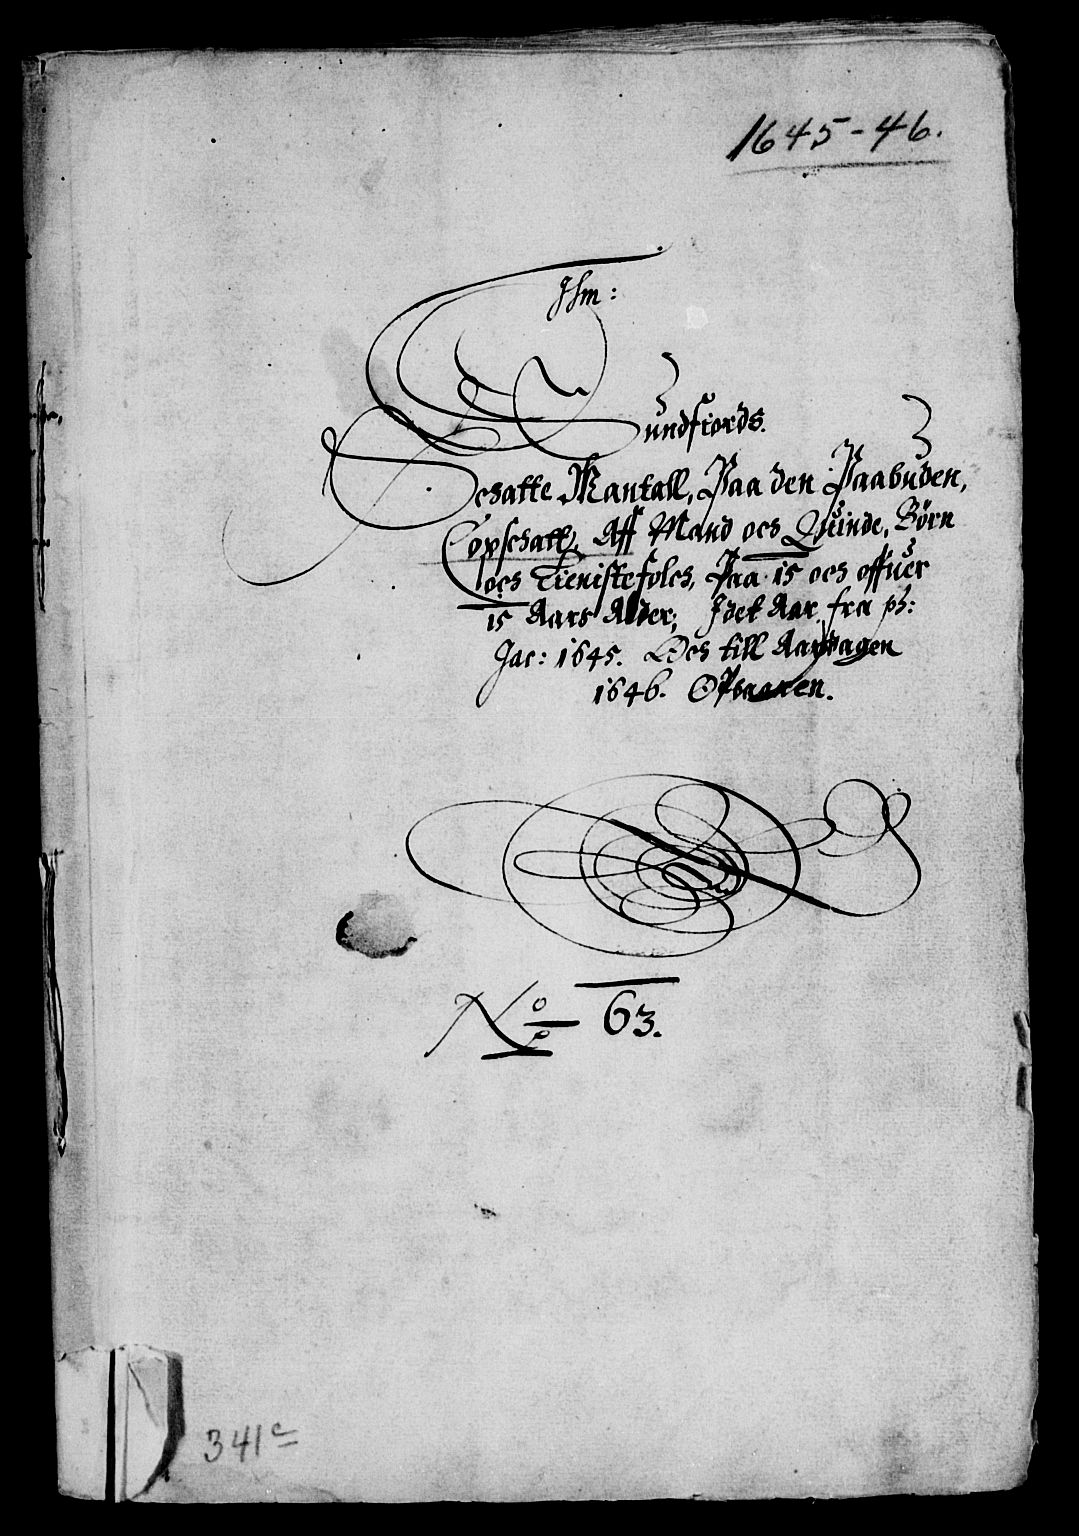 1645-46.
Ihm:
Sundfiords.
Schatte Mantall, Paa den Paabuden,
Copschatt, Aff Mand och Quinde, Børn
och Tienistefolch, Paa 15 och offuer
15 Aars Alder; Idet Aar fra ph:
Jac: 1645. Och till Aarsdagen
1646. Opbaaren.
No 63.
341c